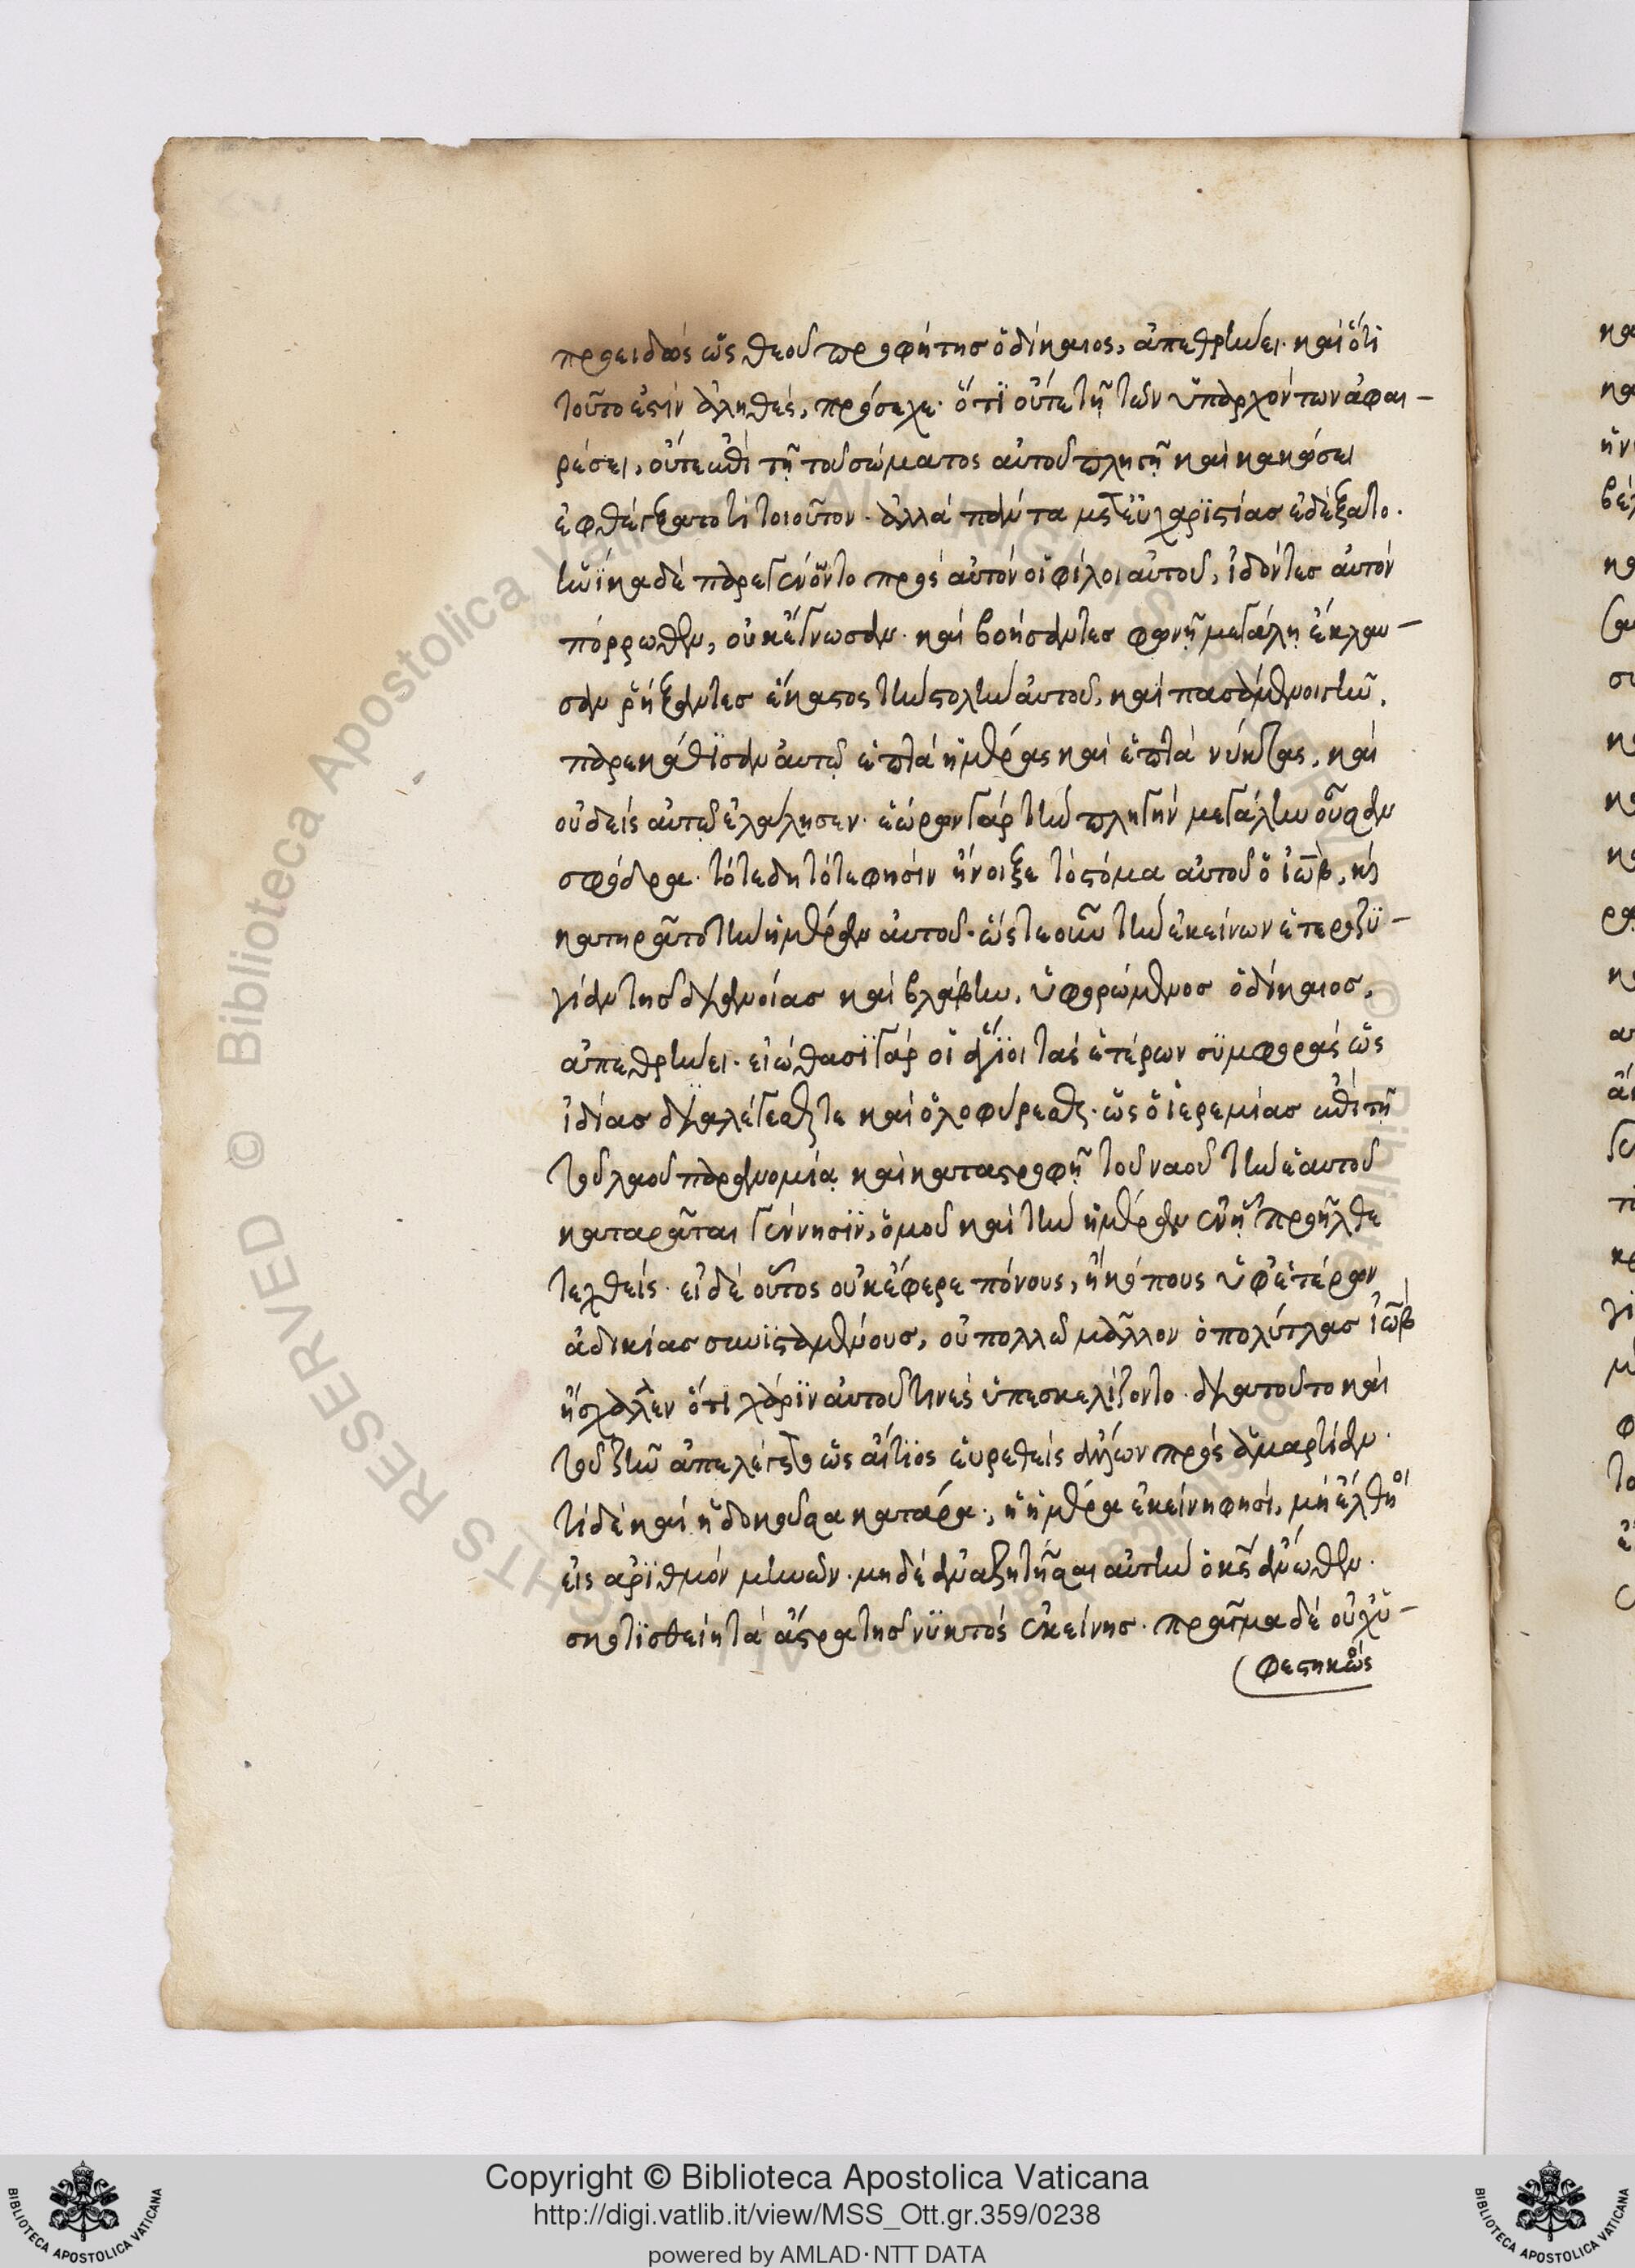 προειδὼς ὡς θεοῦ προφήτης ὁ δίκαιος, ἀπεθρήνει. καὶ ὅτι
τοῦτο ἐστὶν ἀληθὲς, πρόσεχε. ὅτι οὔτε τῇ τῶν ὑπαρχόντων ἀφαι-
ρέσει, οὔτε ἐπὶ τῇ τοῦ σώματος αὐτοῦ πληγῇ καὶ κακώσει
ἐφθέγξατο τι τοιοῦτον. ἀλλὰ πάντα μετ' εὐχαριστίας ἐδέξατο.
ἡνίκα δὲ παρεγένοντο πρὸς αὐτὸν οἱ φίλοι αὐτοῦ, ἰδόντες αὐτὸν
πόρρωθεν, οὐκ ἔγνωσαν. καὶ βοήσαντες φωνῇ μεγάλῃ ἔκλαυ-
σαν ῥήξαντες ἕκαστος τὴν στολὴν αὐτοῦ, καὶ πασάμενοι γῆν,
παρεκάθισαν αὐτῷ ἑπτὰ ἡμέρας καὶ ἑπτὰ νύκτας, καὶ
οὐδεὶς αὐτῷ ἐλάλησεν. ἑώρων γὰρ τὴν πληγὴν μεγάλην οὖσαν
σφόδρα. τότε δὴ τότε φησὶν ἤνοιξε τὸ στόμα αὐτοῦ ὁ ἰὼβ, καὶ
κατηρᾶτο τὴν ἡμέραν αὐτοῦ. ὥστε οὖν τὴν ἐκείνων ἑτεροζυ-
γίαν τῆς διανοίας καὶ βλάβην, ὑφορώμενος ὁ δίκαιος,
ἀπεθρήνει. εἰώθασι γὰρ οἱ ἅγιοι τὰς ἑτέρων συμφορὰς ὡς
ἰδίας διαλέγεσθαι τε καὶ ὀλοφύρεσθαι. ὡς ὁ ἱερεμίας ἐπὶ τῇ
τοῦ λαοῦ παρανομίᾳ καὶ καταστροφῇ τοῦ ναοῦ τὴν ἑαυτοῦ
καταρᾶται γέννησιν, ὁμοῦ καὶ τὴν ἡμέραν ἐν ᾗ προῆλθε
τεχθείς. εἰ δὲ οὗτος οὐκ ἔφερε πόνους, ἢ κόπους ὑφ' ἑτέρων
ἀδικίας συνισταμένους, οὐ πολλῷ μᾶλλον ὁ πολύτλας ἰὼβ
ἤσχαλλεν ὅτι χάριν αὐτοῦ τινὲς ὑπεσκελίζοντο. διατοῦτο καὶ
τοῦ ζῆν ἀπελέγετο ὡς αἴτιος εὑρεθεὶς ἀνίων πρὸς ἁμαρτίαν.
τί δὲ καὶ ἡ δοκοῦσα κατάρα; ἡ ἡμέρα ἐκείνη φησί, μὴ ἔλθοι
εἰς ἀριθμὸν μηνῶν. μηδὲ ἀναζητῆσαι αὐτὴν ὁ κς ἄνωθεν.
σκοτισθείη τὰ ἄστρα τῆς νυκτὸς ἐκείνης. πρᾶγμα δὲ οὐχ ὑ-
φεστηκὼς
Copyright © Biblioteca Apostolica Vaticana
http://digi.vatlib.it/view/MSS_Ott.gr.359/0238
powered by AMLAD·NTT DATA